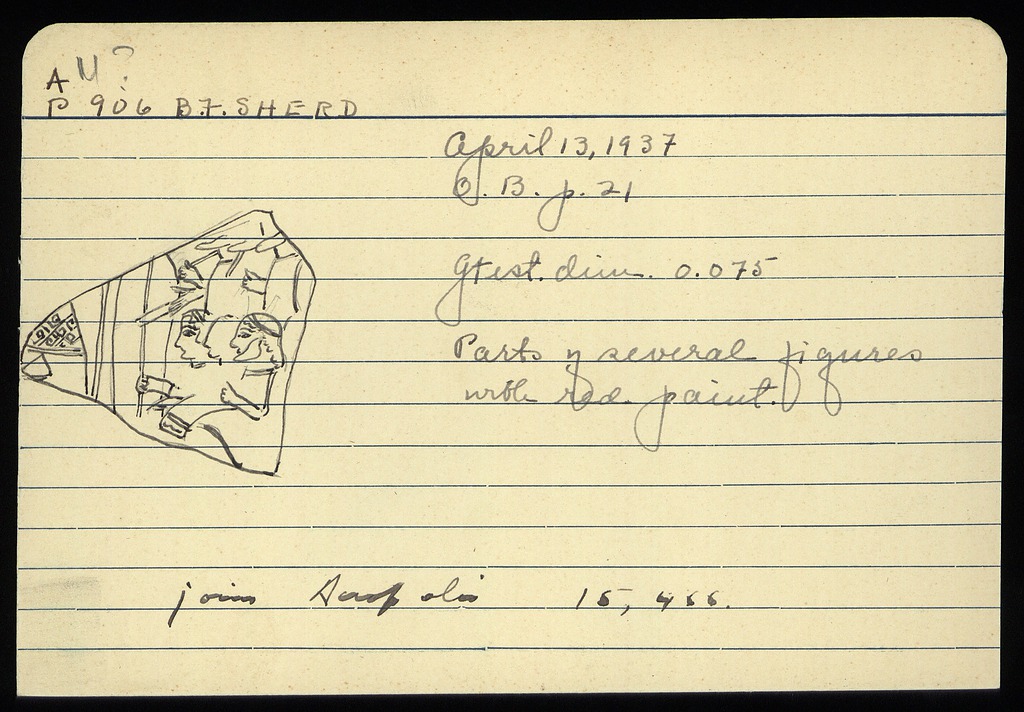 A U ?
P 906 B.F. SHERD
April 13, 1937
O. B. p. 21
Gtest. dim. 0.075
Parts of several figures
with red paint.
joins Acropolis 15, 466.